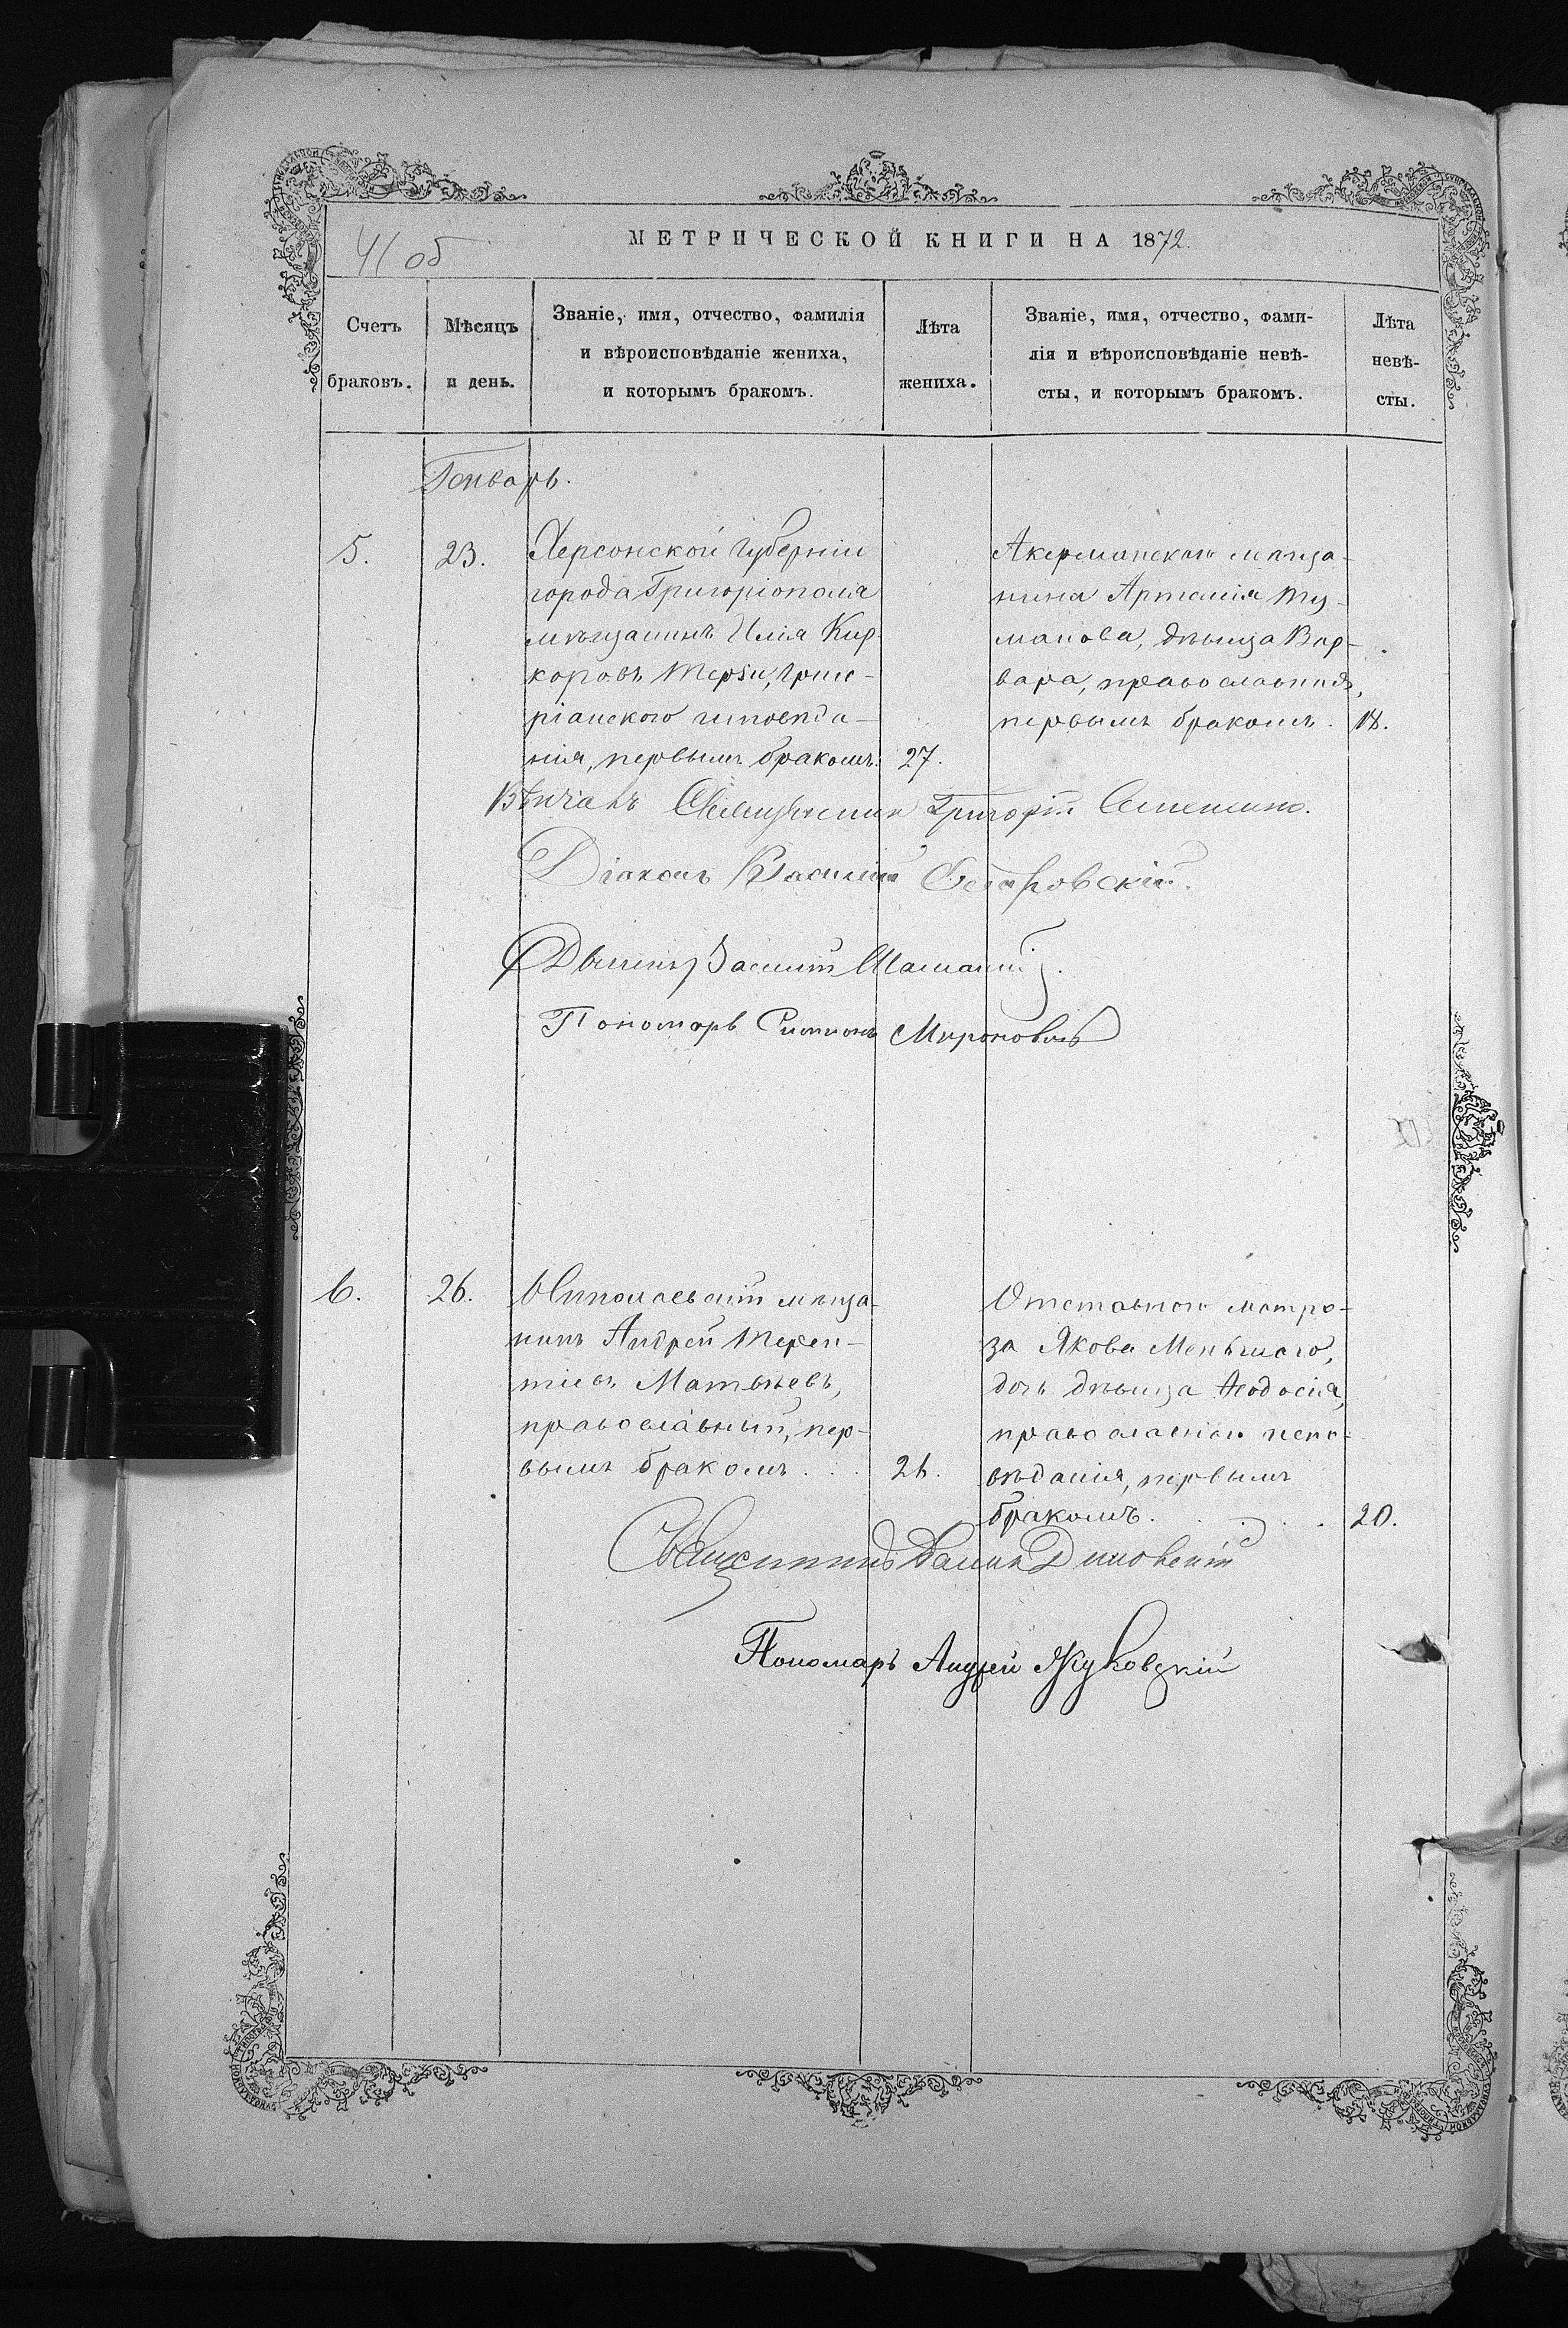 41 об
МЕТРИЧЕСКОЙ КНИГИ НА 1872.
Счетъ браковъ.
Мѣсяцъ и день.
Званіе, имя, отчество, фамилія
и вѣроисповѣданіе жениха,
и которымъ бракомъ.
Лѣта жениха.
Званіе, имя, отчество, фами-
лія и вѣроисповѣданіе невѣ-
сты, и которымъ бракомъ.
Лѣта
невѣ-
сты.
Генварь.
5.
23.
Херсонской губерніи
города Григоріополя
мѣщанинъ Илія Кир-
коровъ Терзи, григо-
ріанскаго исповѣда-
нія, первымъ бракомъ.
27.
Акерманскаго мѣща-
нина Артемія Ту-
манова, дѣвица Вар-
вара, православная,
первымъ бракомъ.
18.
Вѣнчалъ Священникъ Григорій
Діаконъ Василій
Василій
Пономарь Симеонъ Мироновичъ
6.
26.
Николаевскій мѣща-
нинъ Андрей Терен-
тіевъ Матвѣевъ,
православный, пер-
вымъ бракомъ . . .
26.
Отставного матро-
за Якова Меньшаго,
дочь дѣвица Феодосія,
православнаго испо-
вѣданія, первымъ
бракомъ. . . . .
20.
Священникъ
Пономарь Андрей Жуковскій